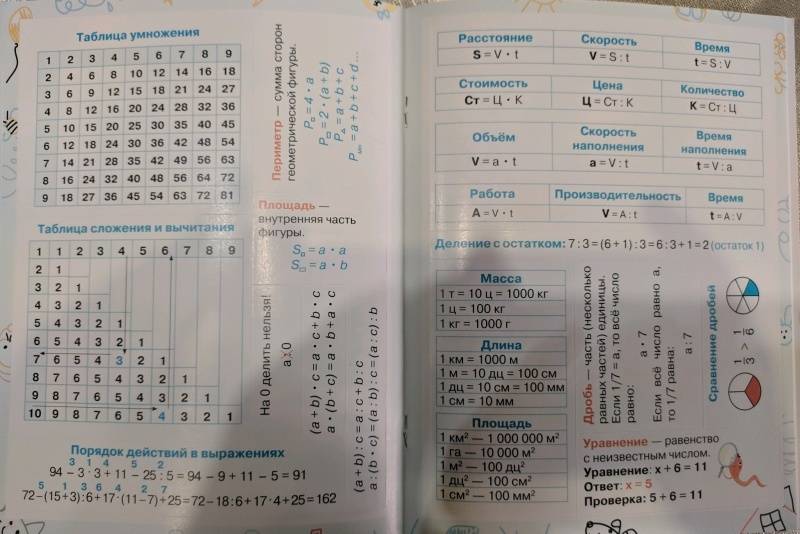 Таблица умножения
1 2 3 4 5 6 7 8 9
2 4 6 8 10 12 14 16 18
3 6 9 12 15 18 21 24 27
4 8 12 16 20 24 28 32 36
5 10 15 20 25 30 35 40 45
6 12 18 24 30 36 42 48 54
7 14 21 28 35 42 49 56 63
8 16 24 32 40 48 56 64 72
9 18 27 36 45 54 63 72 81
Таблица сложения и вычитания
1 1 2 3 4 5 6 7 8 9
2 1
3 2 1
4 3 2 1
5 4 3 2 1
6 5 4 3 2 1
7 6 5 4 3 2 1
8 7 6 5 4 3 2 1
9 8 7 6 5 4 3 2 1
10 9 8 7 6 5 4 3 2 1
Порядок действий в выражениях
3 1 4 5 2
94 − 3 · 3 + 11 − 25 : 5 = 94 − 9 + 11 − 5 = 91
5 1 3 6 4 2 7
72−(15+3):6+17·(11−7)+25=72−18:6+17·4+25=162
Периметр — сумма сторон
геометрической фигуры.
P□ = 4 · a
P▭ = 2 · (a+b)
P△ = a+b+c
Pмн = a+b+c+d...
Площадь —
внутренняя часть
фигуры.
S□ = a · a
S▭ = a · b
На 0 делить нельзя!
a:0
(a+b) · c = a · c + b · c
a · (b+c) = a · b + a · c
(a+b) : c = a : c + b : c
a : (b · c) = (a : b) : c = (a : c) : b
Расстояние Скорость Время
S = V · t V = S : t t = S : V
Стоимость Цена Количество
Ст = Ц · К Ц = Ст : К К = Ст : Ц
Объём Скорость наполнения Время наполнения
V = a · t a = V : t t = V : a
Работа Производительность Время
A = V · t V = A : t t = A : V
Деление с остатком: 7 : 3 = (6 + 1) : 3 = 6 : 3 + 1 = 2 (остаток 1)
Масса
1 т = 10 ц = 1000 кг
1 ц = 100 кг
1 кг = 1000 г
Длина
1 км = 1000 м
1 м = 10 дц = 100 см
1 дц = 10 см = 100 мм
1 см = 10 мм
Площадь
1 км² — 1 000 000 м²
1 га — 10 000 м²
1 м² — 100 дц²
1 дц² — 100 см²
1 см² — 100 мм²
Дробь — часть (несколько
равных частей) единицы.
Если 1/7 = a, то всё число
равно:
a · 7
Если всё число равно a,
то 1/7 равна:
a : 7
Сравнение дробей
1/3 > 1/6
Уравнение — равенство
с неизвестным числом.
Уравнение: x + 6 = 11
Ответ: x = 5
Проверка: 5 + 6 = 11